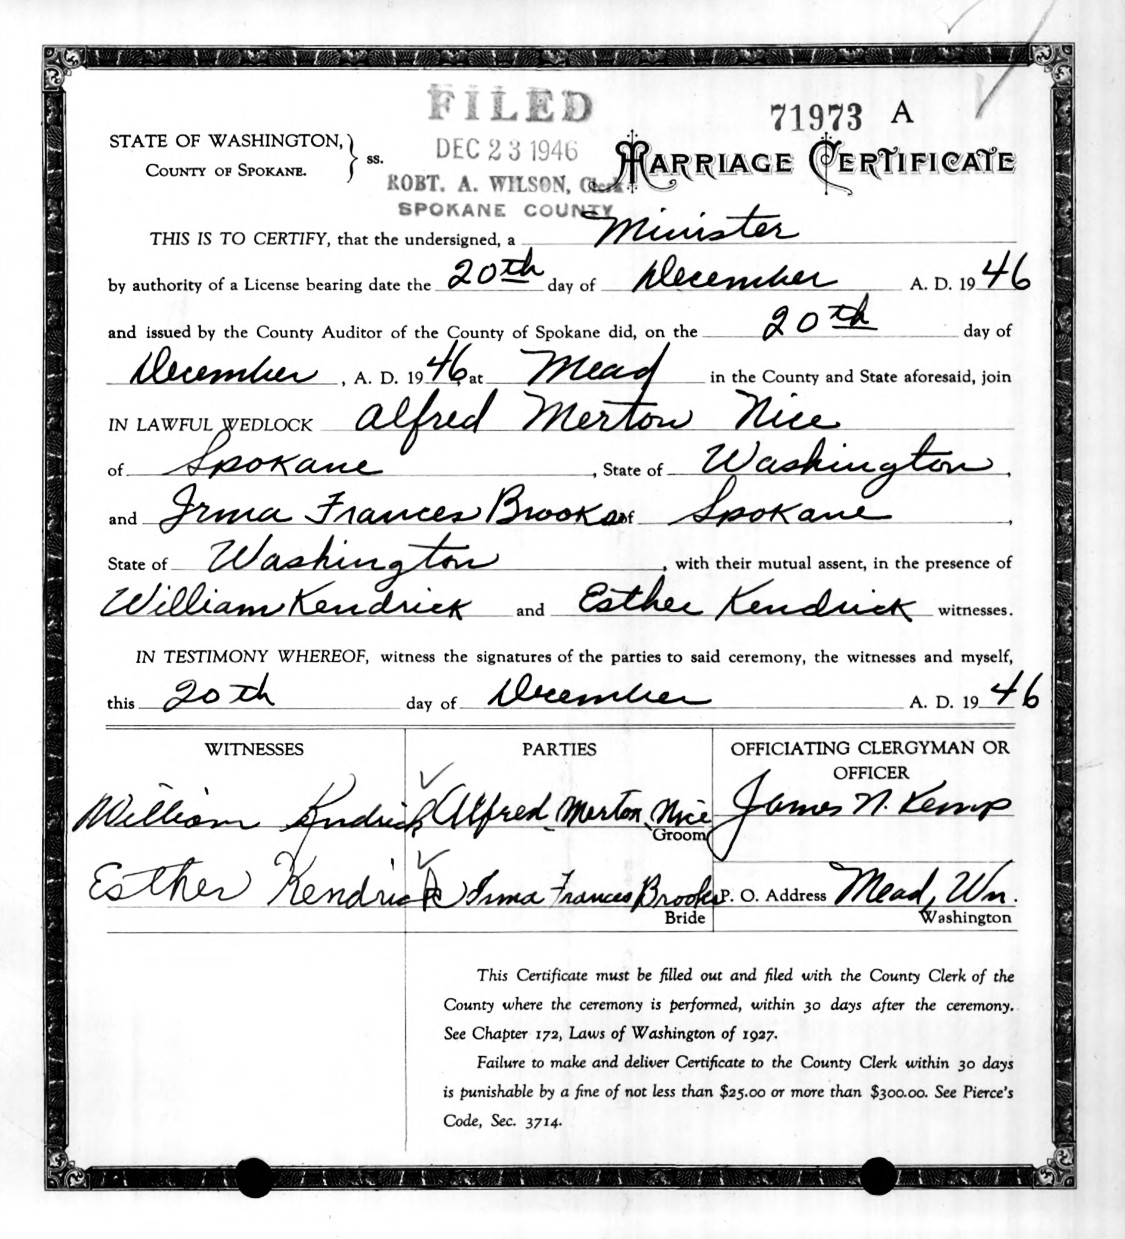 FILED
71973 A
STATE OF WASHINGTON,
COUNTY OF SPOKANE.
} ss.
DEC 23 1946
ROBT. A. WILSON, Clerk
SPOKANE COUNTY
MARRIAGE CERTIFICATE
THIS IS TO CERTIFY, that the undersigned, a Minister
by authority of a License bearing date the 20th day of December A. D. 1946
and issued by the County Auditor of the County of Spokane did, on the 20th day of
December, A. D. 1946, at Mead in the County and State aforesaid, join
IN LAWFUL WEDLOCK Alfred Merton Nice
of Spokane, State of Washington,
and Irma Frances Brooks of Spokane,
State of Washington, with their mutual assent, in the presence of
William Kendrick and Esther Kendrick witnesses.
IN TESTIMONY WHEREOF, witness the signatures of the parties to said ceremony, the witnesses and myself,
this 20th day of December A. D. 1946
WITNESSES PARTIES OFFICIATING CLERGYMAN OR
OFFICER
William Kendrick Alfred Merton Nice James N. Kemp
Groom
Esther Kendrick Irma Frances Brooks P. O. Address Mead, Wn.
Bride Washington
This Certificate must be filled out and filed with the County Clerk of the
County where the ceremony is performed, within 30 days after the ceremony.
See Chapter 172, Laws of Washington of 1927.
Failure to make and deliver Certificate to the County Clerk within 30 days
is punishable by a fine of not less than $25.00 or more than $300.00. See Pierce's
Code, Sec. 3714.